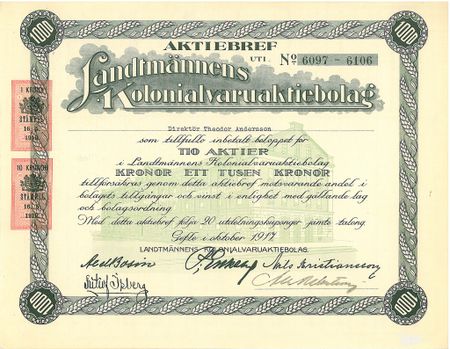 AKTIEBREF
UTI. Nº 6097 - 6106
Landtmännens
Kolonialvaruaktiebolag
Direktör Theodor Andersson
som tillfullo inbetalt beloppet för
TIO AKTIER
i Landtmännens Kolonialvaruaktiebolag
KRONOR ETT TUSEN KRONOR
tillförsäkras genom detta aktiebref motsvarande andel i
bolagets tillgångar och vinst i enlighet med gällande lag
och bolagsordning
Med detta aktiebref följa 20 utdelningskuponger jämte talong
Gefle i oktober 1917
LANDTMÄNNENS KOLONIALVARUAKTIEBOLAG.
Nils Kristiansson
1000
1000
1000
1000
1 KRONA
10 KRONOR